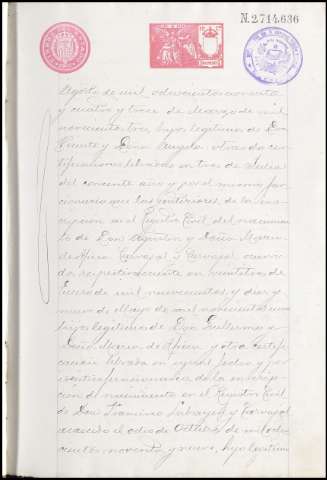 N.2714.636
Agosto de mil ochocientos noventa
y cuatro y trece de Marzo de mil
novecientos tres, hijo legítimo de Don
Vicente y Doña Angela otra de cer-
tificaciones libradas en tres de
del corriente año y por el mismo fun-
cionario que las anteriores de la ins-
cripción en el Registro Civil del nacimien-
to de Don Agustín y Doña María
de África Carvajal y Carvajal ocurri-
do respectivamente en veintitres de
Enero de mil novecientos y diez y
nueve de Mayo de mil novecientos uno
hijos legítimos de Don Guillermo y
Doña María de África y otra certifi-
cación librada en igual fecha y por
idéntico funcionario de la inscrip-
ción del nacimiento en el Registro Civil
de Don Francisco y Carvajal
acaecido el ocho de Octubre de mil ocho-
cientos noventa y nueve, hijo legítimo